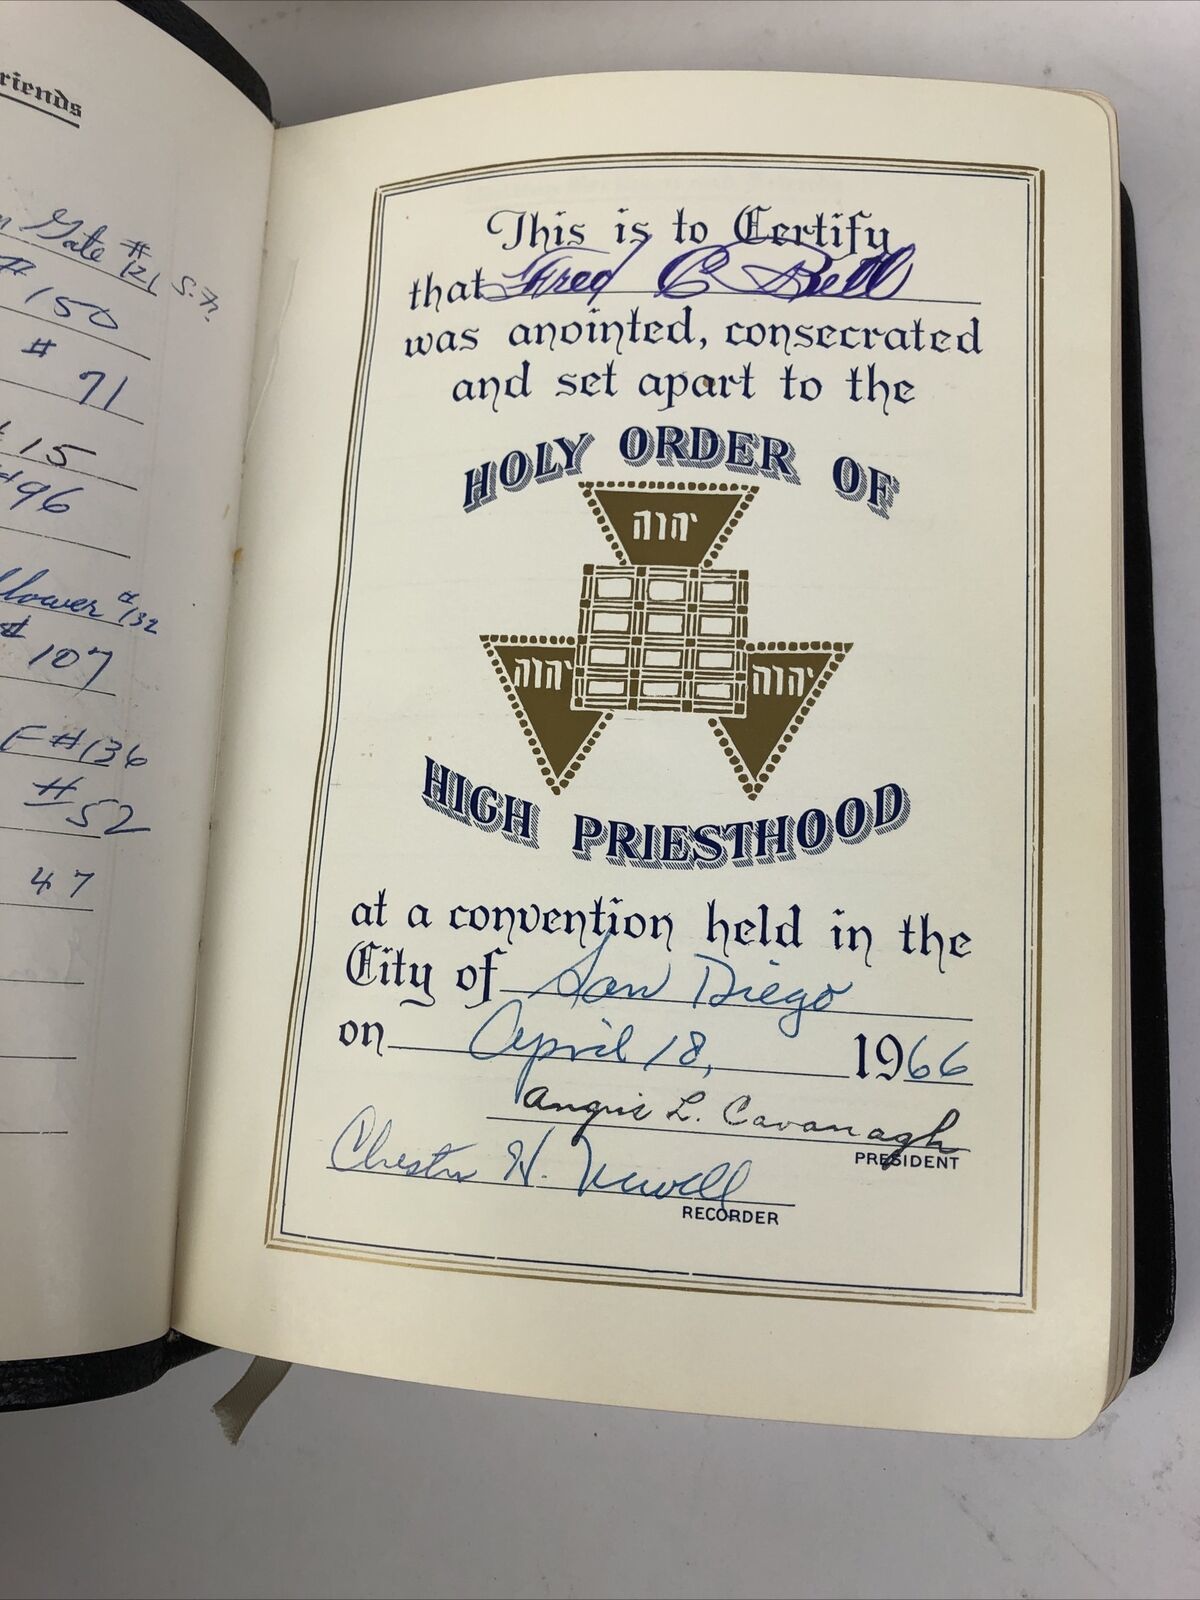 riends
Gate #121 S.F.
# 150
# 71
15
#96
flower #132
# 107
F #136
# 52
47
This is to Certify
that Fred C Bell
was anointed, consecrated
and set apart to the
HOLY ORDER OF
יהוה
יהוה יהוה
HIGH PRIESTHOOD
at a convention held in the
City of San Diego
on April 18, 1966
Angus L. Cavanagh
PRESIDENT
Chester H. Newell
RECORDER